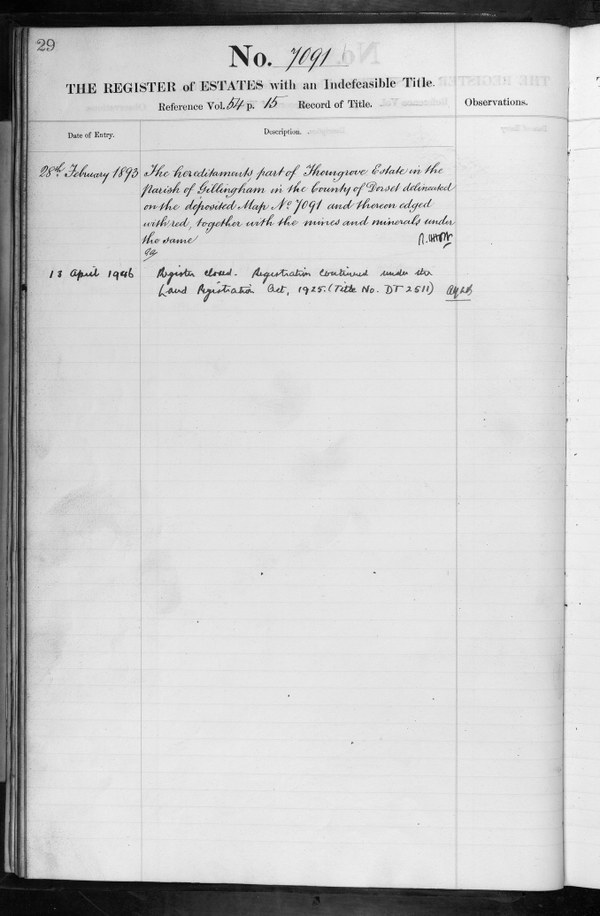 29
No. 7091
THE REGISTER of ESTATES with an Indefeasible Title.
Reference Vol. 54 p. 15 Record of Title.
Observations.
Date of Entry.
Description.
28th February 1893
The hereditaments part of Thorngrove Estate in the
Parish of Gillingham in the County of Dorset delineated
on the deposited Map No. 7091 and thereon edged
with red, together with the mines and minerals under
the same
13 April 1946
Register closed. Registration continued under the
Land Registration Act, 1925. (Title No. DT 2511)